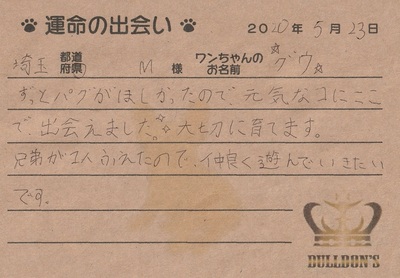 運命の出会い 2020年5月23日
埼玉 都道府県 M 様 ワンちゃんのお名前 ☆グウ☆
ずっとパグがほしかったので元気なコにここ
で出会えました。☆大切に育てます。
兄弟が1人ふえたので、仲良く遊んでいきたい
です。
BULLDON'S